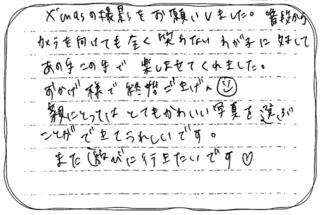 X'masの撮影をお願いしました。普段から
カメラを向けても全く笑わない わが子に対して
あの手この手で 楽しませてくれました。
おかげ様で 終始ご上げん
親にとっては とてもかわいい写真を 選ぶ
ことができてうれしいです。
また に行きたいです♡